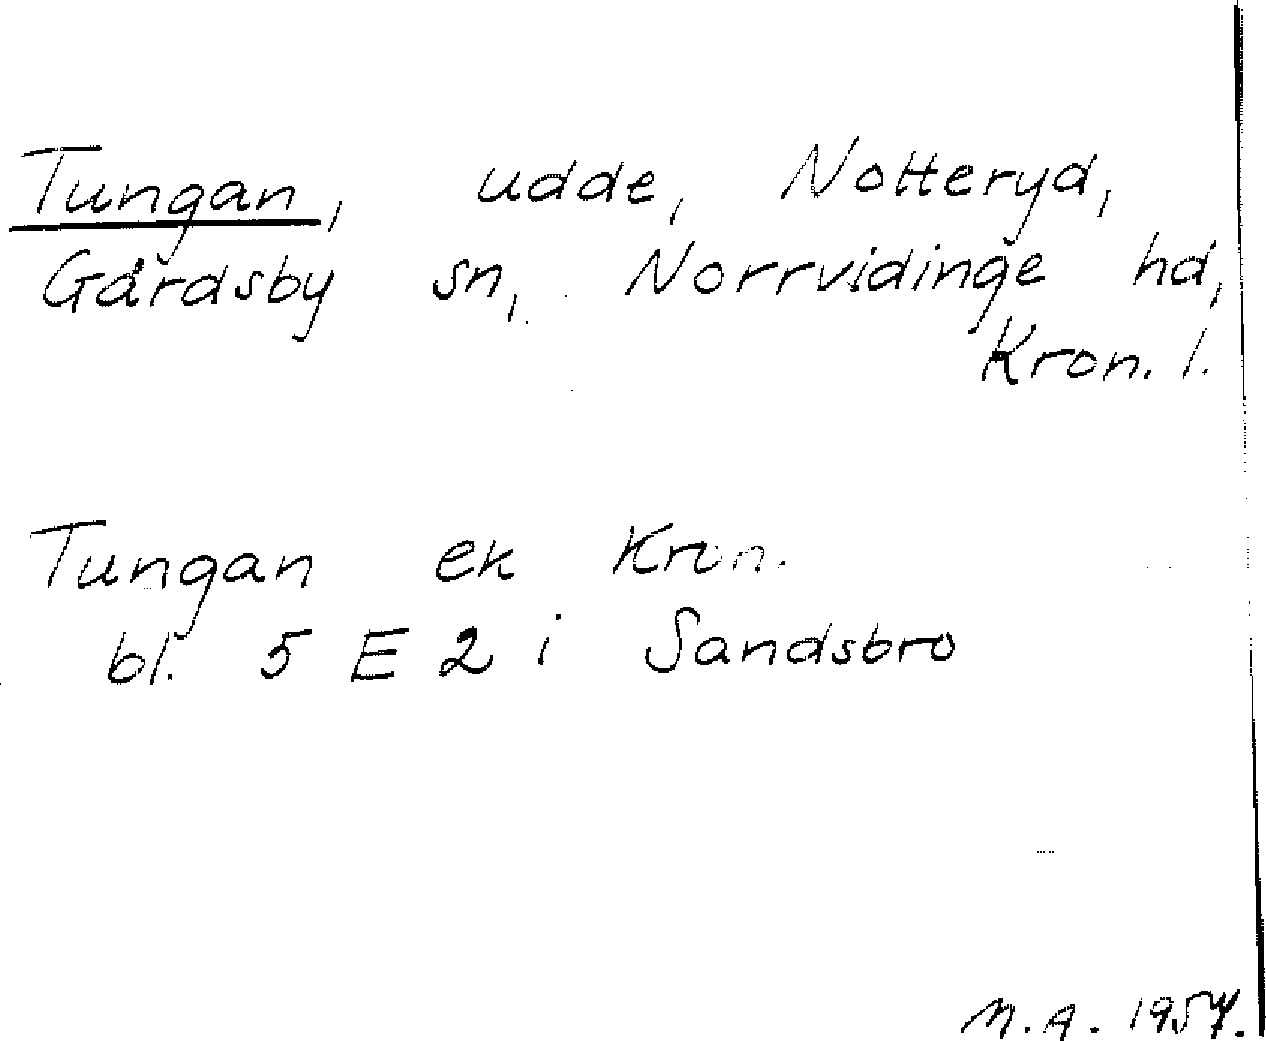 Tungan, udde, Notteryd,
Gårdsby sn, Norrvidinge hd,
Kron. l.
Tungan ek Kron.
bl. 5 E 2 i Sandsbro
M.A. 1954.